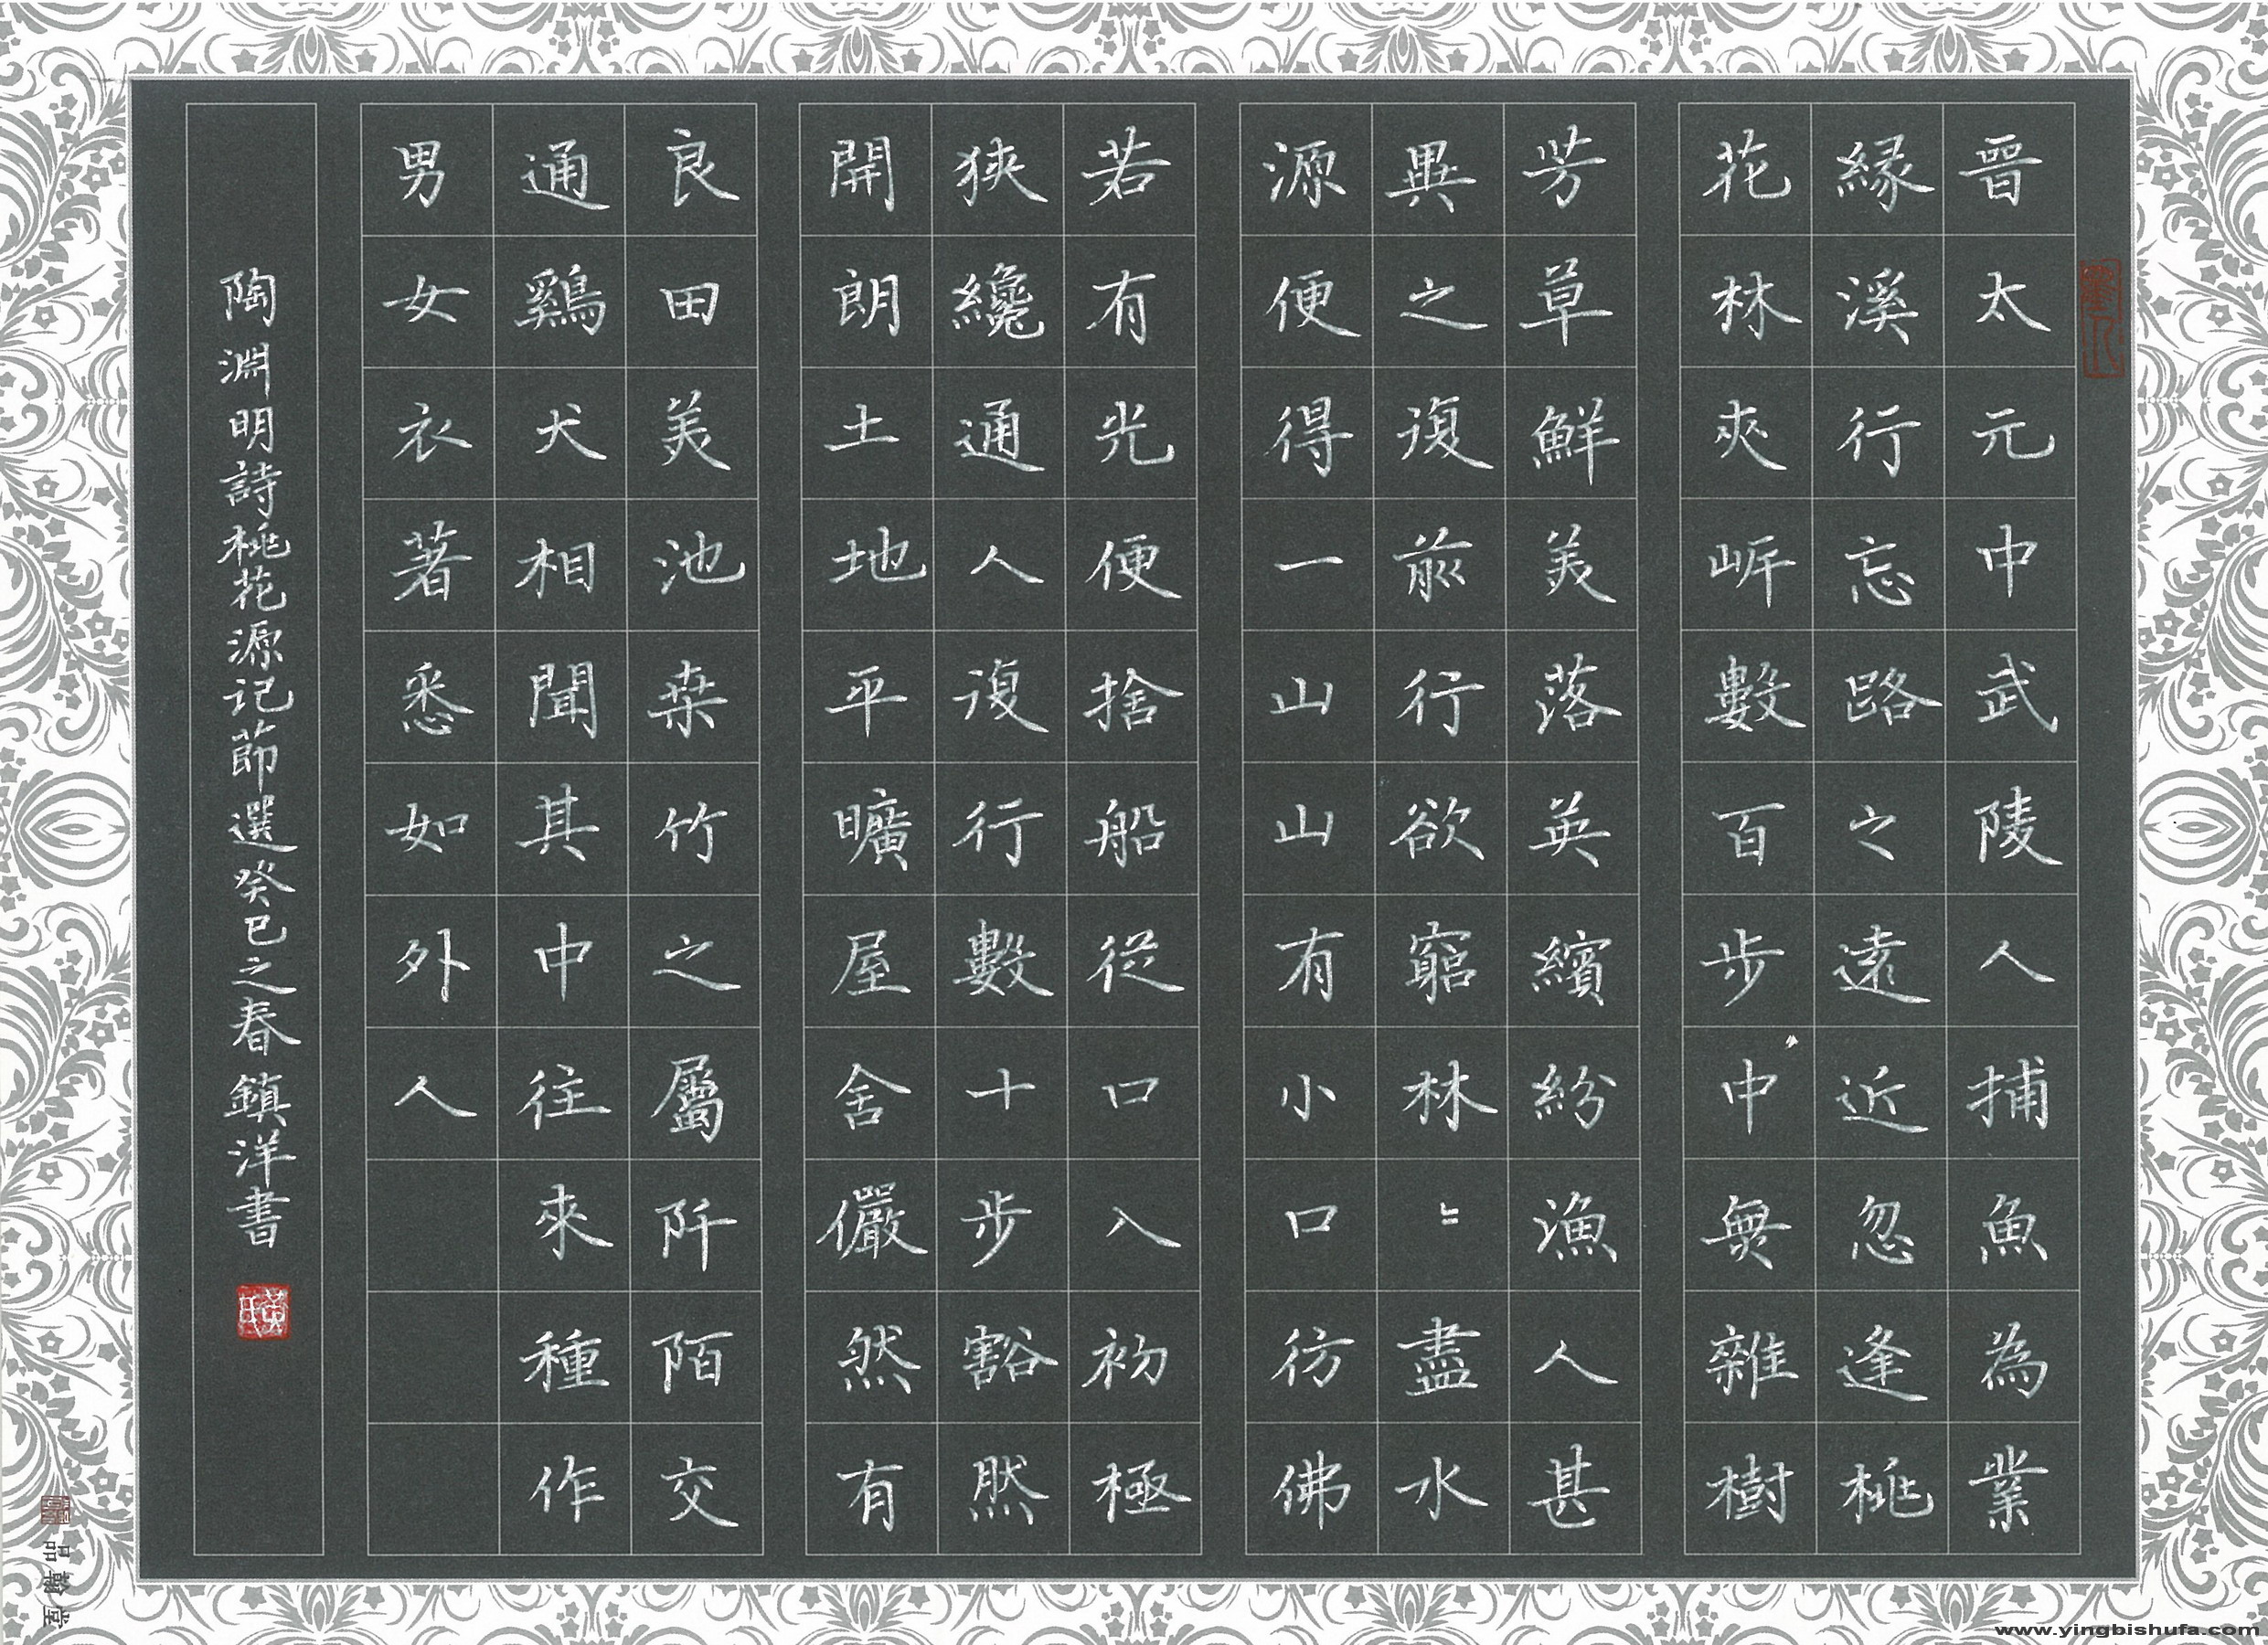 晉太元中武陵人捕魚為業
緣溪行忘路之遠近忽逢桃
花林夾岍數百步中無雜樹
芳草鮮美落英繽紛漁人甚
異之復前行欲窮林〻盡水
源便得一山山有小口彷佛
若有光便捨船從口入初極
狹纔通人復行數十步豁然
開朗土地平曠屋舍儼然有
良田美池桒竹之屬阡陌交
通鷄犬相聞其中往來種作
男女衣著悉如外人
陶淵明詩桃花源记節選癸巳之春 鎮洋書
品翰堂
www.yingbishufa.com